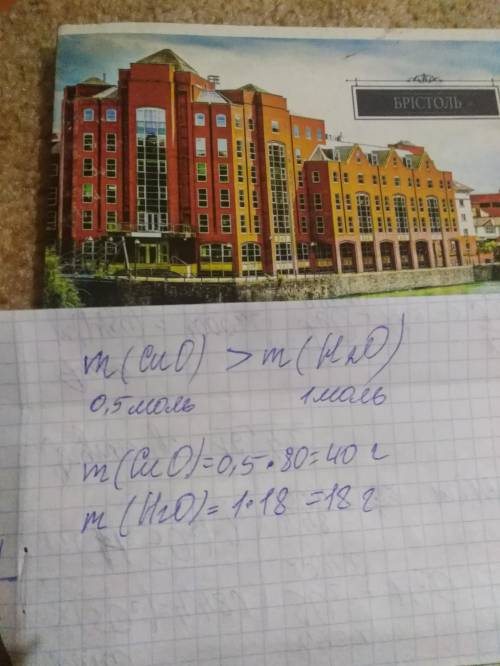 БРІСТОЛЬ
m (CuO) > m (H2O)
0,5 моль 1 моль
m (CuO) = 0,5 • 80 = 40 г
m (H2O) = 1 • 18 = 18 г